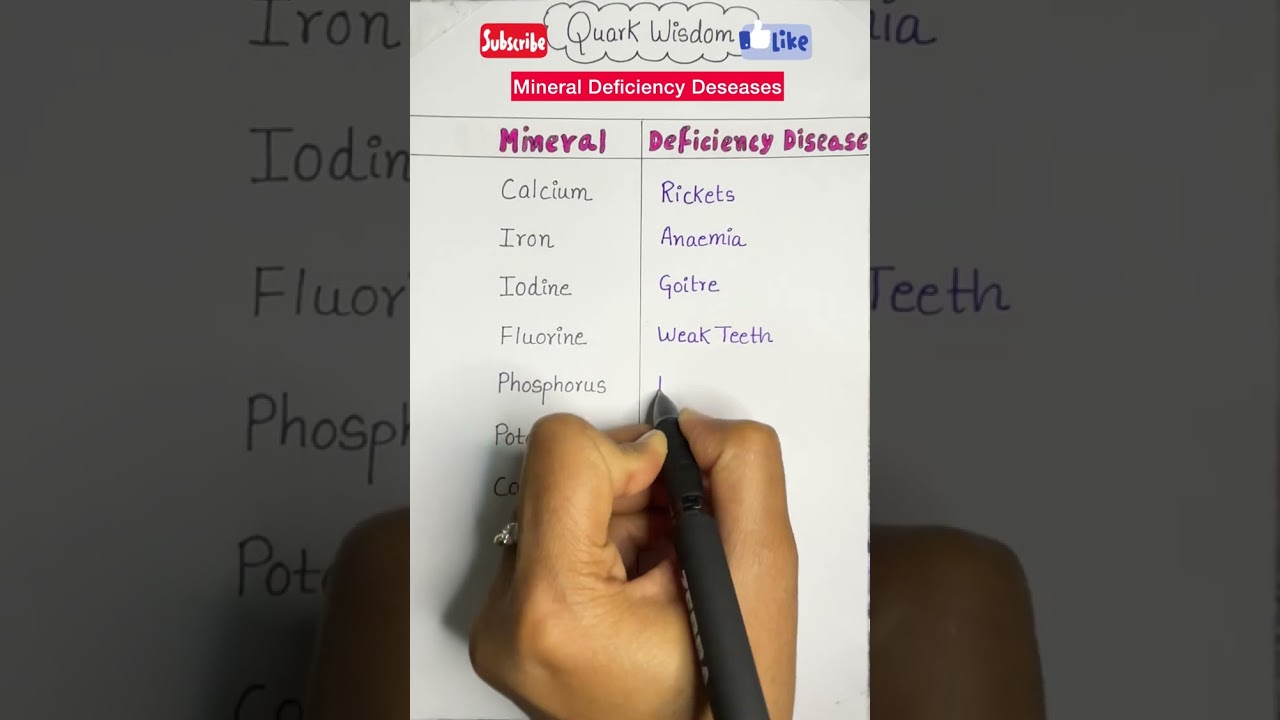 Quark Wisdom
Subscribe
Like
Mineral Deficiency Deseases
Mineral Deficiency Disease
Calcium Rickets
Iron Anaemia
Iodine Goitre
Fluorine Weak Teeth
Phosphorus